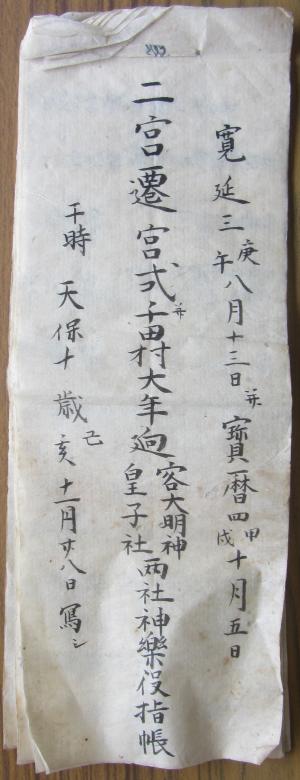 寛延三庚午八月十三日并寶暦四甲戌十月五日
二宮遷宮式并千田村大年廻客大明神皇子社両社神樂役指帳
干時天保十歳己亥十一月廿八日寫シ